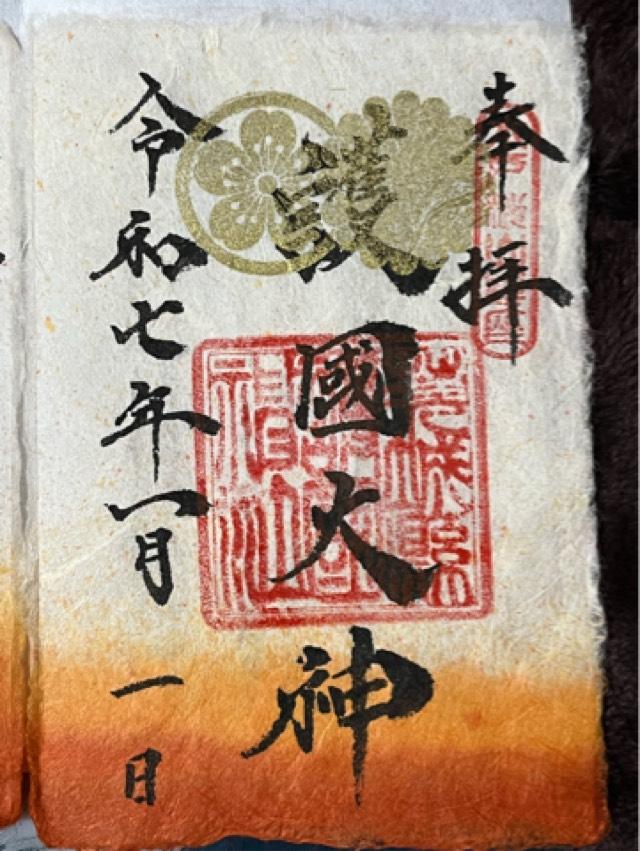 奉拝
護國大神
令和七年一月一日